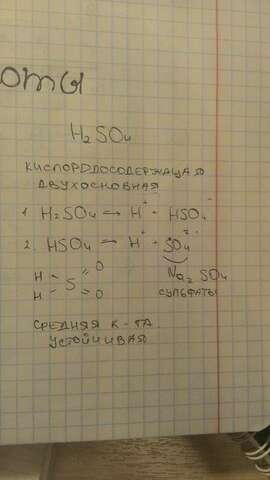 оты
H₂SO₄
КИСЛОРОДОСОДЕРЖАЩАЯ
ДВУХОСНОВНАЯ
1. H₂SO₄ → H⁺ + HSO₄⁻
2. HSO₄ → H⁺ + SO₄²⁻
H O
S
H O
Na₂SO₄
СУЛЬФАТЫ
СРЕДНЯЯ К-ТА
УСТОЙЧИВАЯ